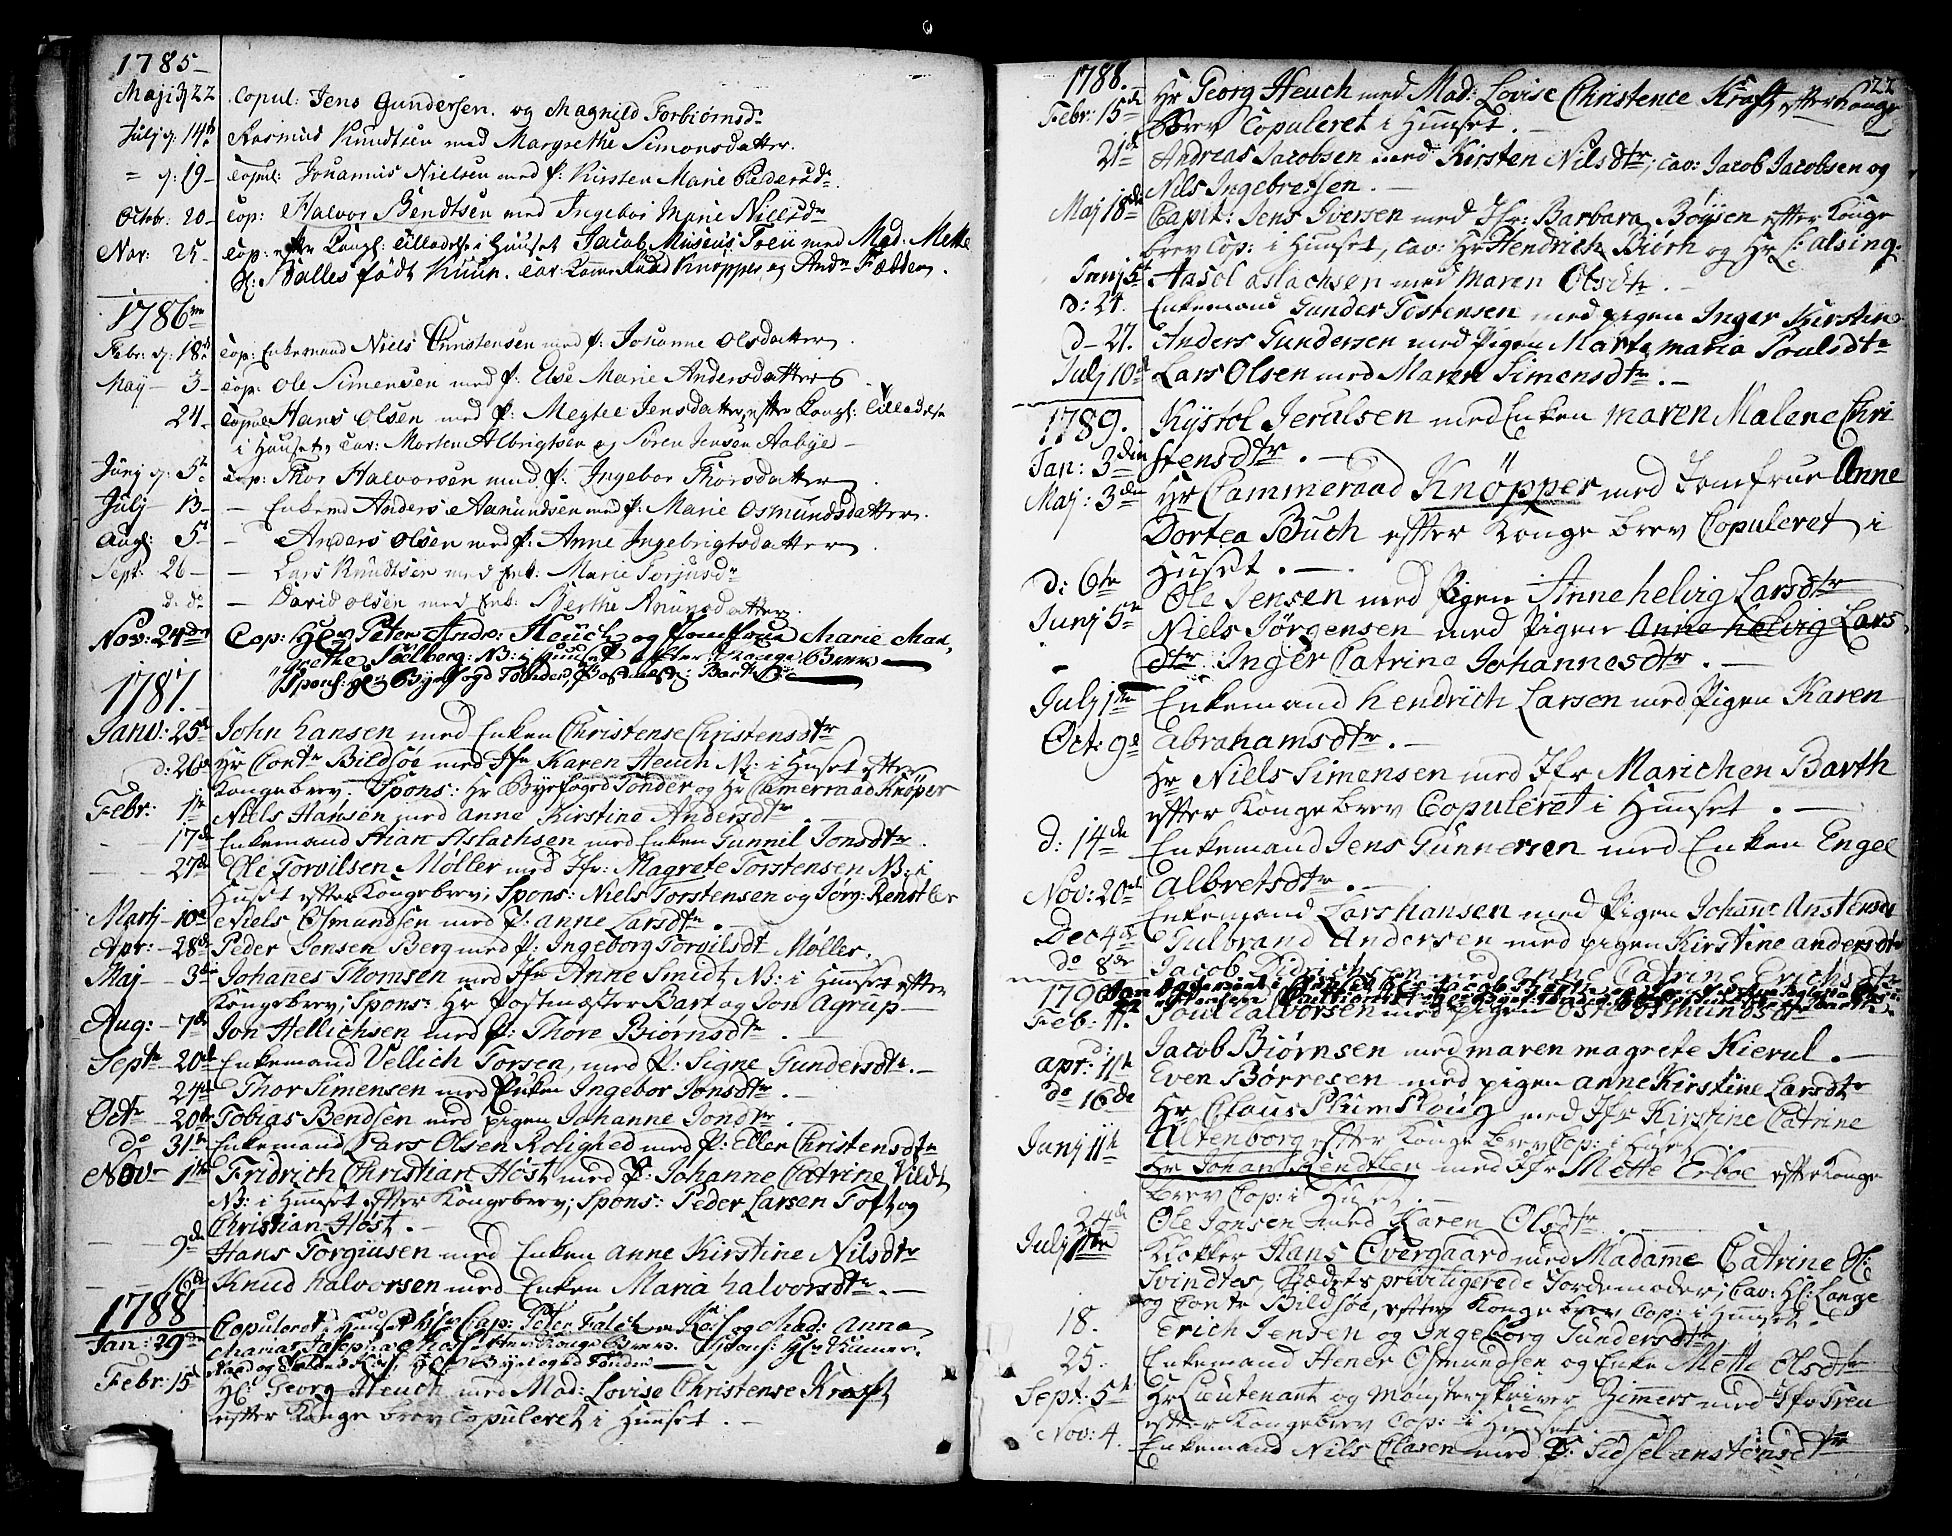 1785
Maji 22 Copul: Jens Gundersen og Magnild Torbiørnsd:
Julj 14 Rasmus Knudtsen med Margrethe Simonsdatter.
19 Copul: Johannis Nielsen med P: Kirsten Marie Pedersd
Octobr: 20 Cop: Halvor Bendtsen med Ingebor Marie Nielsd
Nov: 25 Cop: efter Kongl: Tilladelse i Huuset Jacob Museus Treu med Mad: Mette
Balles født Kuur. Cav: Knøpper og And: Fæbben.
1786
Febr: 18 Cop: Enkemand Niels Christensen med P: Johanne Olsdatter.
May 3 Cop: Ole Simensen med P: Else Marie Andersdatter
24 Copul: Hans Olsen med P: Megtele Jensdatter, efter Kongl: Tilladelse
i Huuset, Cav: Morten Albrigtsen og Søren Jensen Aabye
Junj 5 Cop: Thor Halvorsen med P: Ingebor Thorsdatter
Julj 13 Enkemd Anders Aamundsen med P: Marie Osmundsdatter.
Aug: 5 Anders Olsen med P: Anne Ingebrigtsdatter
Sept: 26 Lars Knudtsen med Enk: Marie Torjusd
d: do David Olsen med Enk: Berthe Knudsdatter.
Nov: 24 Cop: Hr Peter Andr: Heuch og Jomfrue Marie Mar
grethe Sølberg: NB: i Huuset efter Konge Brev
Spons: Byefogd Tønder, Postmest: Bart
1787.
Janv: 25 John Hansen med Enken Christense Christensdtr
d: 26 Hr Contr Bildsøe med Jfr Karen Heuch NB: i Huset efter
Kongebrev. Spons: Hr Byefoged Tønder og Hr Camerraad Knöper
Febr: 1 Niels Hansen med Anne Kirstine Andersdtr
17 Enkemand Aslachsen med Enken Gunnil Jonsdtr
27 Ole Torvilsen Møller med Jfr: Magrete Torstensen NB: i
Huset efter Kongebrev; Spons: Niels Torstensen og Jørg: Renstler
Martj 10 Niels Osmundsen med P: Anne Larsdtr.
Apr: 28 Peder Jensen Berg med P: Ingeborg Torvilsdt Møller.
Maj 3 Johanes Thomsen med Jfr Anne Smidt NB: i Huuset efter
Kongebrev; Spons: Hr Postmester Bart og Jon Agrup
Aug: 7 Jon Hellichsen med P: Thore Biørnsdtr.
Septr 20 Enkemand Vellich Torsen, med P: Signe Gundersdtr.
24 Thor Simensen med Enken Ingebor Jonsdtr.
Octr 20 Tobias Bendsen med pigen Johanne Jondtr
do 31 Enkemand Lars Olsen Rolighed med P: Ellen Christensdtr
Nov 1 Fridrich Christian Høst med P: Johanne Catrine Vildt
NB: i Huuset efter Kongebrev; Spons: Peder Larsen Toft og
Christian Høst.
9 Hans Torgiusen med Enken Anne Kirstine Nilsdtr
16 Knud Halvorsen med Enken Maria Halvorsdtr.
1788
Jan: 29 Copuleret i Huuset Cap: Peter Falch og Mad: Anna
Maria Josepha efter Konge Brev. Spons: Hr Kamer
Raad og Byefoged Tønder
Febr: 15 Hr Georg Heuch med Mad: Lovise Christense Kraft
efter Konge brev Copuleret i Huuset.
22
1788.
Febr: 15 Hr Georg Heuch med Mad: Lovise Christence Kraft efter Konge
Brev Copuleret i Huuset.
21 Andreas Jacobsen med Kirsten Nilsdtr, Cav: Jacob Jacobsen og
Nils Ingebretsen.
Maj 18 Capit: Jens Iversen med Jfr: Barbara Boysen efter Konge
brev Cop: i Huuset, Cav: Hr Hendrich Biørn og Hr alsing.
Junj 5 Aasol Aslachsen med Maren Olsdtr.
d: 24. Enkemand Gunder Tostensen med pigen Inger Kirstin
d 27. Anders Gundersen med Pigen Marte Maria Poulsdtr
Julj 10 Lars Olsen med Maren Simensdtr.
1789. Kystol Jerulsen med Enken Maren Malene Chri
Jan: 3 stensdtr.
Maj: 3 Hr Cammeraad Knöpper med Jomfrue Anne
Dortea Buch efter Konge brev Copuleret i
Huset.
d: 6 Ole Jensen med Pigen Anne helvig Larsdtr
Junj 5 Niels Jörgensen med Pigen Anne helvig Lars
dtr Inger Catrine Johannesdtr.
Julj 1 Enkemand Hendrich Larsen med Pigen Karen
Abrahamsdtr.
Oct: 9 Hr Niels Simensen med Jfr Marichen Barth
efter Konge brev Copuleret i Huuset.
d: 14 Enkemand Jens Gunnersen med Enken Engel
Albretsdtr.
Nov: 20 Enkemand Lars Hansen med Pigen Johanne Anstensd
Dec 4 Gulbrand Andersen med pigen Kirstine Andersdtr
do 8 Jacob Didrichsen med Anne Catrine Erichsdtr
1790
Feb: 11. Poul Calvorsen med pigen Osmundsdtr
Jacob Biørnsen med Maren Magrete Kierul.
apr: 11 Even Børresen med pigen Anne Kirstine Larsdtr
do 16 Hr Claus Plum Ploug med Jfr Kirstine Catrine
Altenborg efter Konge brev Cop: i Huset
Junj 11 Hr Johan Rendtler med Jfr Mette Erboe efter Konge
brev Cop: i Huset.
24 Ole Jonsen med Karen Olsdtr.
Julj 1 Klokker Hans Overgaard med Madame Catrine
Svindtes, Stædets priviligerede Jordemoder; Cav: Hr: Lange
og Contr Bildsøe, efter Konge brev Cop: i Huuset.
18. Erich Jensen og Ingeborg Gundersdtr
25. Enkemand Hener Osmundsen og Enke Mette Olsdtr
Sept: 5 Hr Lieutenant og Mønsterskriver Zimers med Jfr Treu
efter Kongebrev Cop: i Huuset.
Nov: 4. Enkemand Nils Clasen med P: Sidsel Anstensdtr